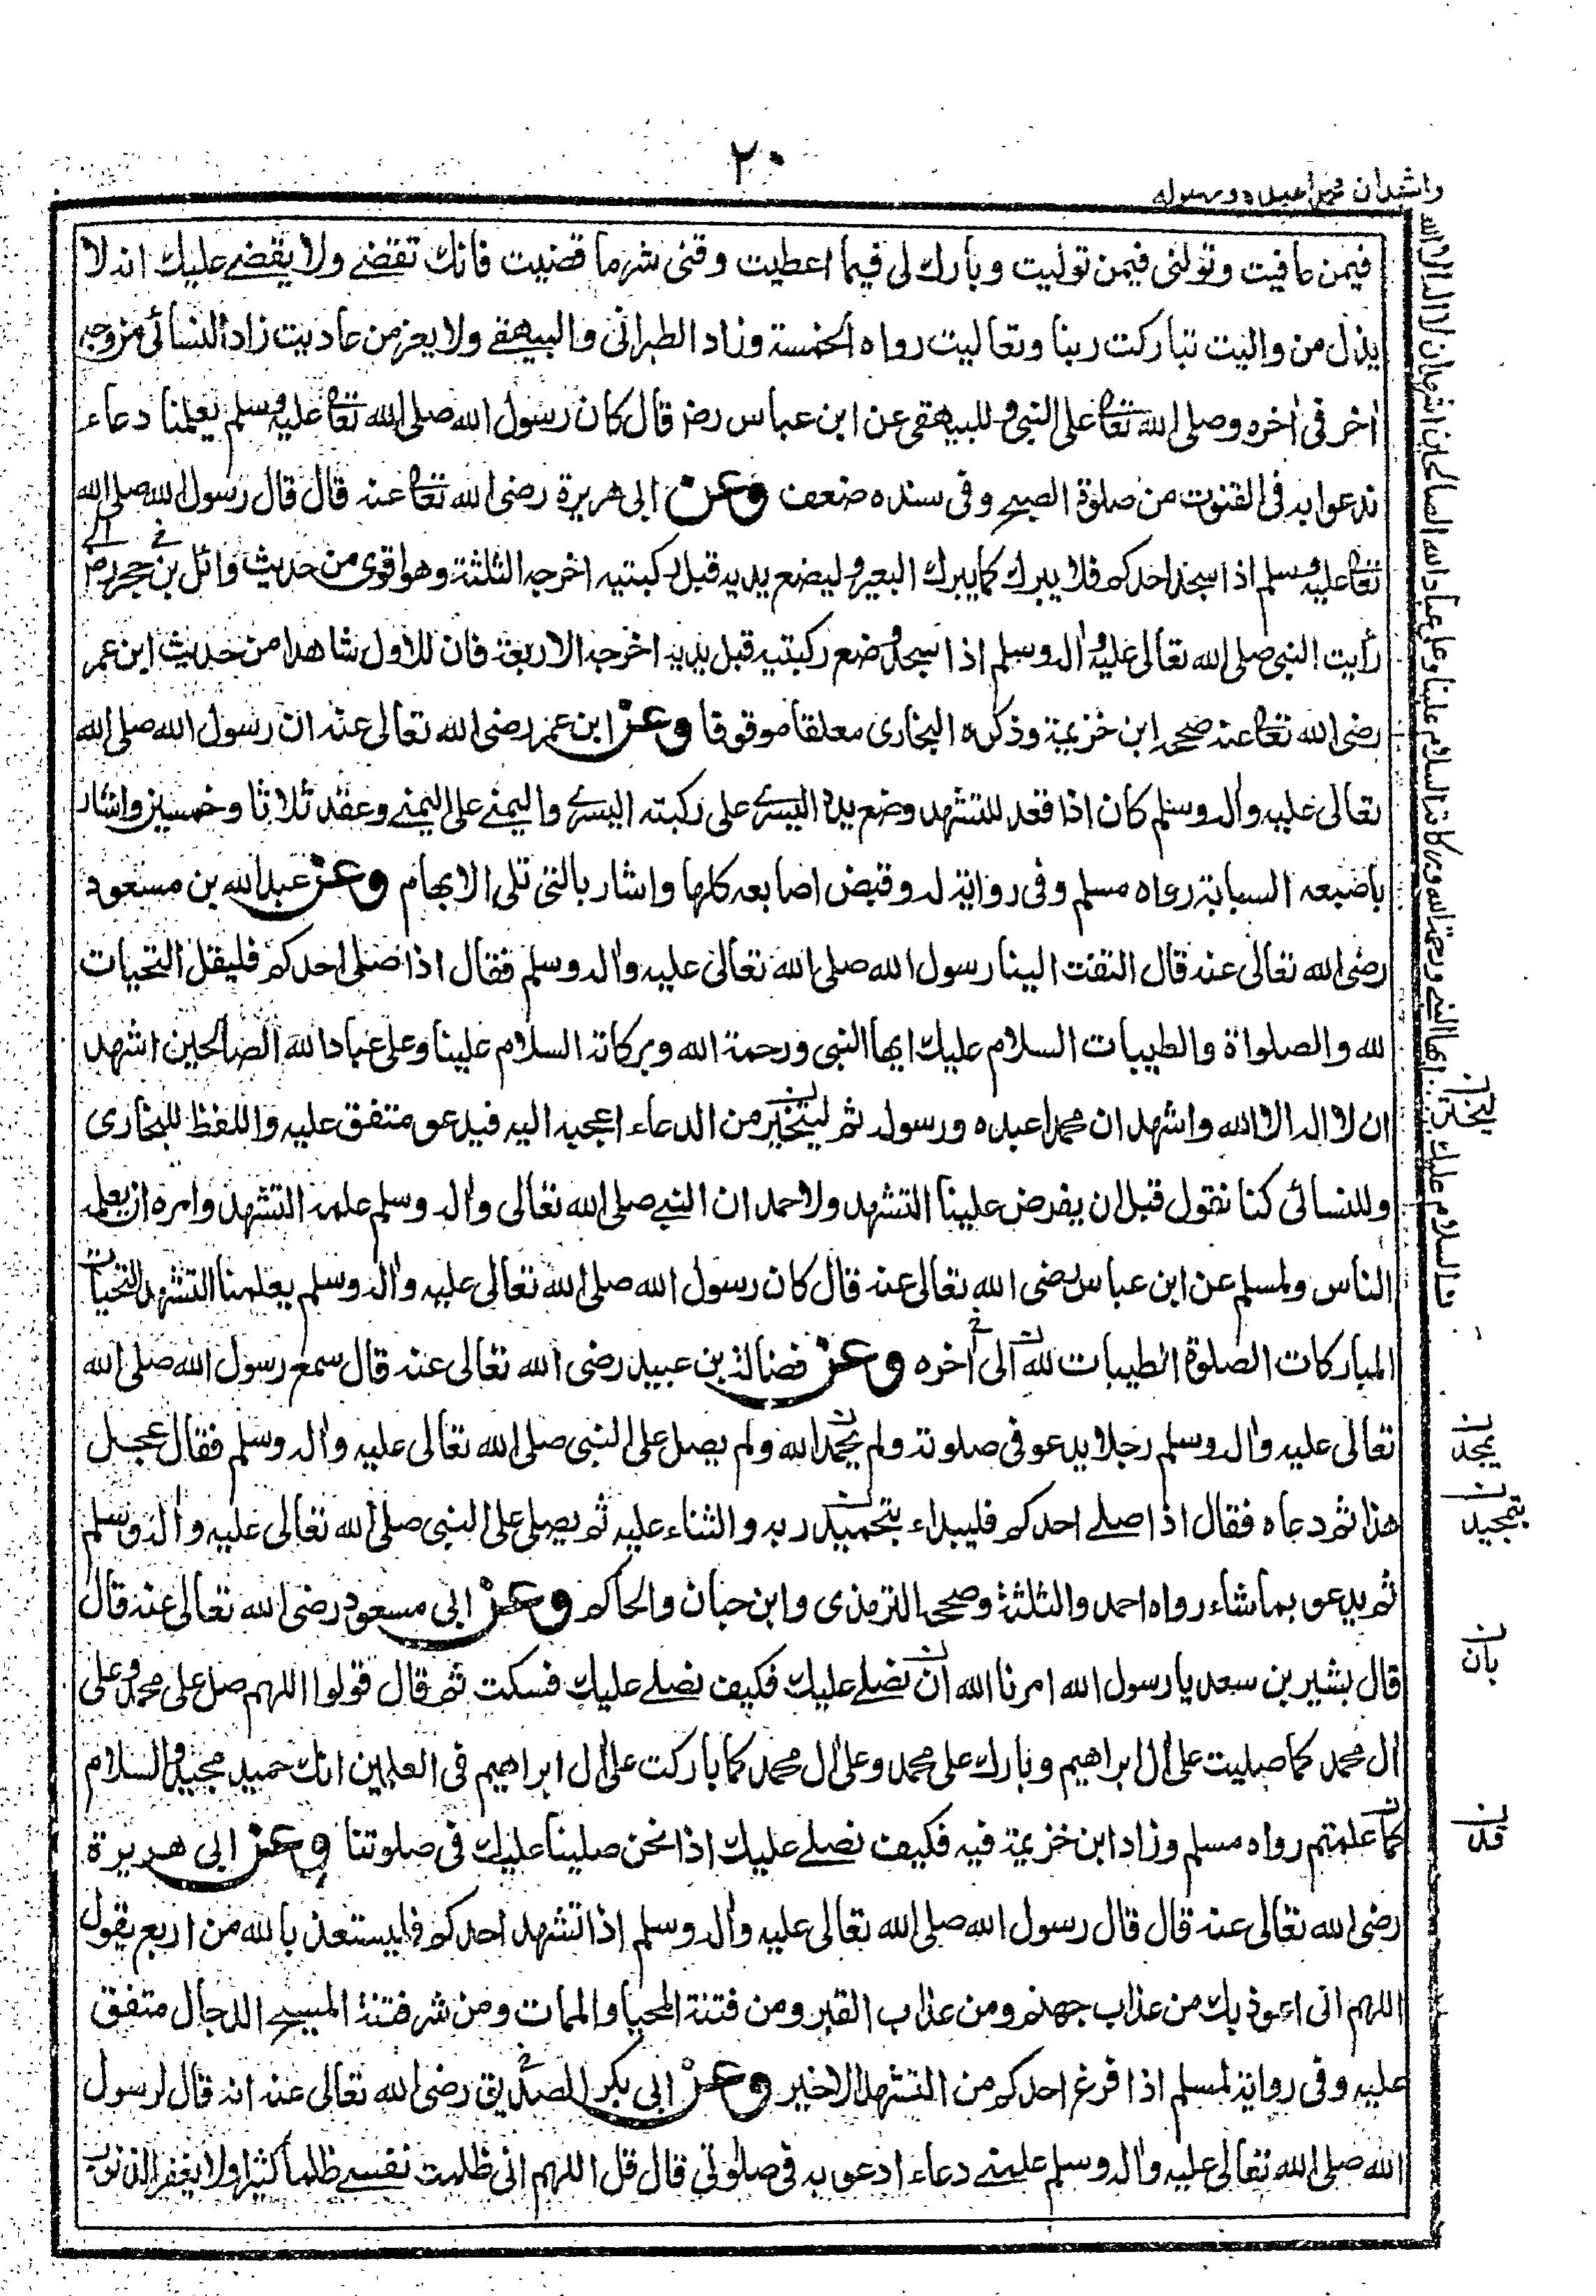 ٢٠
واشهدان محمدا عبده ورسوله
فيمن عافيت وتولنى فيمن توليت وبارك لى فيما اعطيت وقنى شرما قضيت فانك تقضے ولا يقضے عليك انه لا
يذل من واليت تباركت ربنا وتعاليت رواه الخمسة وزاد الطبرانى والبيهقے ولا يعز من عاديت زاد النسائى من وجه
اٰخر فى اٰخره وصلى الله تعالى على النبى وللبيهقى عن ابن عباس رضـ قال كان رسول الله صلى الله تعالى عليه وسلم يعلمنا دعاء
ندعوا به فى القنوت من صلوة الصبح وفى سنده ضعف وعن ابى هريرة رضى الله تعالى عنه قال قال رسول الله صلى الله
تعالى عليه وسلم اذا سجد احدكم فلا يبرك كما يبرك البعير وليضع يديه قبل ركبتيه اخرجه الثلثة وهو اقوى من حديث وائل بن حجر رضـ
رأيت النبى صلى الله تعالى عليه واٰله وسلم اذا سجد وضع ركبتيه قبل يديه اخرجه الاربعة فان للاول شاهدا من حديث ابن عمر
رضى الله تعالى عنه صححه ابن خزيمة وذكره البخارى معلقا موقوفا وعن ابن عمر رضى الله تعالى عنه ان رسول الله صلى الله
تعالى عليه واٰله وسلم كان اذا قعد للتشهد وضع يده اليسرے على ركبته اليسرے واليمنے على اليمنے وعقد ثلاثا وخمسين واشار
باصبعه السبابة رواه مسلم وفى رواية له وقبض اصابعه كلها واشار بالتى تلى الابهام وعن عبد الله بن مسعود
رضى الله تعالى عنه قال التفت الينا رسول الله صلى الله تعالى عليه واٰله وسلم فقال اذا صلى احدكم فليقل التحيات
لله والصلواة والطيبات السلام عليك ايها النبى ورحمة الله وبركاته السلام علينا وعلى عباد الله الصالحين اشهد
ان لا اله الا الله واشهد ان محمدا عبده ورسوله ثم ليتخير من الدعاء اعجبه اليه فيدعو متفق عليه واللفظ للبخارى
وللنسائى كنا نقول قبل ان يفرض علينا التشهد ولاحمد ان النبے صلى الله تعالى واٰله وسلم علمه التشهد وامره ان يعلمه
الناس ولمسلم عن ابن عباس رضى الله تعالى عنه قال كان رسول الله صلى الله تعالى عليه واٰله وسلم يعلمنا التشهد التحيات
المباركات الصلوة الطيبات لله الى اٰخره وعن فضالة بن عبيد رضى الله تعالى عنه قال سمع رسول الله صلى الله
تعالى عليه واٰله وسلم رجلا يدعو فى صلوته ولم يحمد الله ولم يصل على النبى صلى الله تعالى عليه واٰله وسلم فقال عجل
هذا ثم دعاه فقال اذا صلے احدكم فليبداء بتحميد ربه والثناء عليه ثم يصلى على النبى صلى الله تعالى عليه واٰله وسلم
ثم يدعو بما شاء رواه احمد والثلثة وصححه الترمذى وابن حبان والحاكم وعن ابى مسعود رضى الله تعالى عنه قال
قال بشير بن سعد يا رسول الله امرنا الله ان نصلے عليك فكيف نصلے عليك فسكت ثم قال قولوا اللهم صل على محمد وعلى
ال محمد كما صليت على اٰل ابراهيم وبارك على محمد وعلى اٰل محمد كما باركت على اٰل ابراهيم فى العلمين انك حميد مجيد والسلام
كما علمتم رواه مسلم وزاد ابن خزيمة فيه فكيف نصلے عليك اذا نحن صلينا عليك فى صلوتنا وعن ابى هريرة
رضى الله تعالى عنه قال قال رسول الله صلى الله تعالى عليه واٰله وسلم اذا تشهد احدكم فليستعذ بالله من اربع يقول
اللهم انى اعوذ بك من عذاب جهنم ومن عذاب القبر ومن فتنة المحيا والممات ومن شر فتنة المسيح الدجال متفق
عليه وفى رواية لمسلم اذا فرغ احدكم من التشهد الاخير وعن ابى بكر الصديق رضى الله تعالى عنه انه قال لرسول
الله صلى الله تعالى عليه واٰله وسلم علمنے دعاء ادعو به فى صلوتى قال قل اللهم انى ظلمت نفسے ظلما كثيرا ولا يغفر الذنوب
السلام عليك ايها النبے ورحمة الله وبركاته السلام علينا وعلى عباد الله الصالحين اشهد ان لا اله الا الله
ليختر
يمجد
بتمجيد
بان
قد